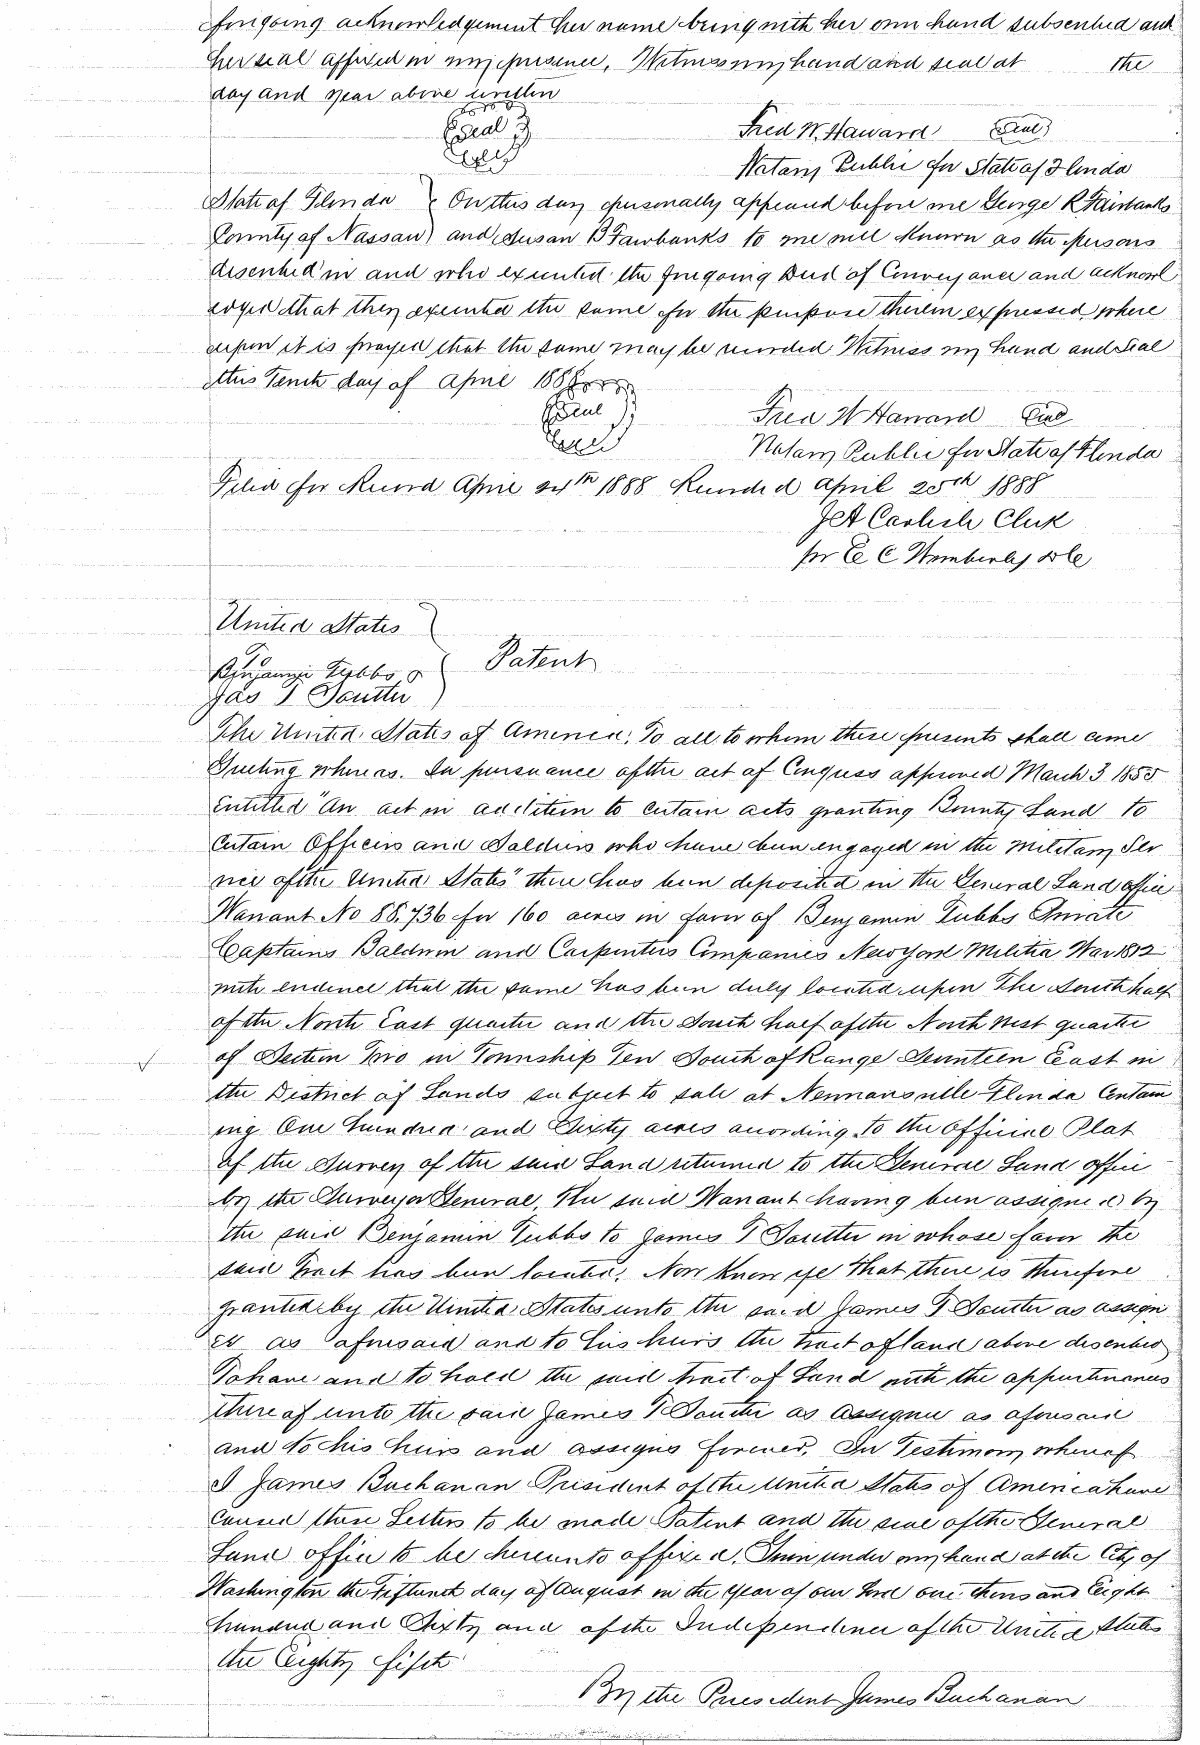 foregoing acknowledgement her name being with her own hand subscribed and
her seal affixed in my presence. Witness my hand and seal at the
day and year above written
Seal Fred W. Haward Seal
Notary Public for State of Florida
State of Florida } On this day personally appeared before me George R Fairbanks
County of Nassau } and Susan B Fairbanks to me well known as the persons
described in and who executed the foregoing Deed of Conveyance and acknowl
edged that they executed the same for the purpose therein expressed, where
upon it is prayed that the same may be recorded Witness my hand and seal
this Tenth day of April 1888
Seal Fred W Haward Seal
Notary Public for State of Florida
Filed for Record April 24th 1888 Recorded April 25th 1888
J A Carlisle Clerk
per E C Wimberly D C
United States
To
Benjamin Tubbs &
Jas T Soutter
Patent
The United States of America, To all to whom these presents shall come
Greeting whereas. In pursuance of the act of Congress approved March 3 1855
entitled "An act in addition to certain acts granting Bounty Land to
certain Officers and Soldiers who have been engaged in the military Ser
vice of the United States" there has been deposited in the General Land office
Warrant No 88.736 for 160 acres in favor of Benjamin Tubbs Private
Captains Baldwin and Carpenters Companies New York Militia War 1812
with evidence that the same has been duly located upon The South half
of the North East quarter and the South half of the North West quarter
of Section Two in Township Ten South of Range Seventeen East in
the District of Lands subject to sale at Newnansville Florida Contain
ing One hundred and Sixty acres according to the official Plat
of the Survey of the said Land returned to the General Land office
by the Surveyor General, The said Warrant having been assigned by
the said Benjamin Tubbs to James T Soutter in whose favor the
said Tract has been located. Now Know ye That there is therefore
granted by the United States unto the said James T Soutter as assign
ee as aforesaid and to his heirs the tract of land above described
To have and to hold the said tract of Land with the appurtenances
thereof unto the said James T Soutter as Assignee as aforesaid
and to his heirs and assigns forever. In Testimony whereof
I James Buchanan President of the United States of America have
caused these Letters to be made Patent and the seal of the General
Land office to be hereunto affixed. Given under my hand at the City of
Washington the Fifteenth day of August in the year of our Lord one thousand Eight
hundred and Sixty and of the Independence of the United States
the Eighty fifth
By the President James Buchanan